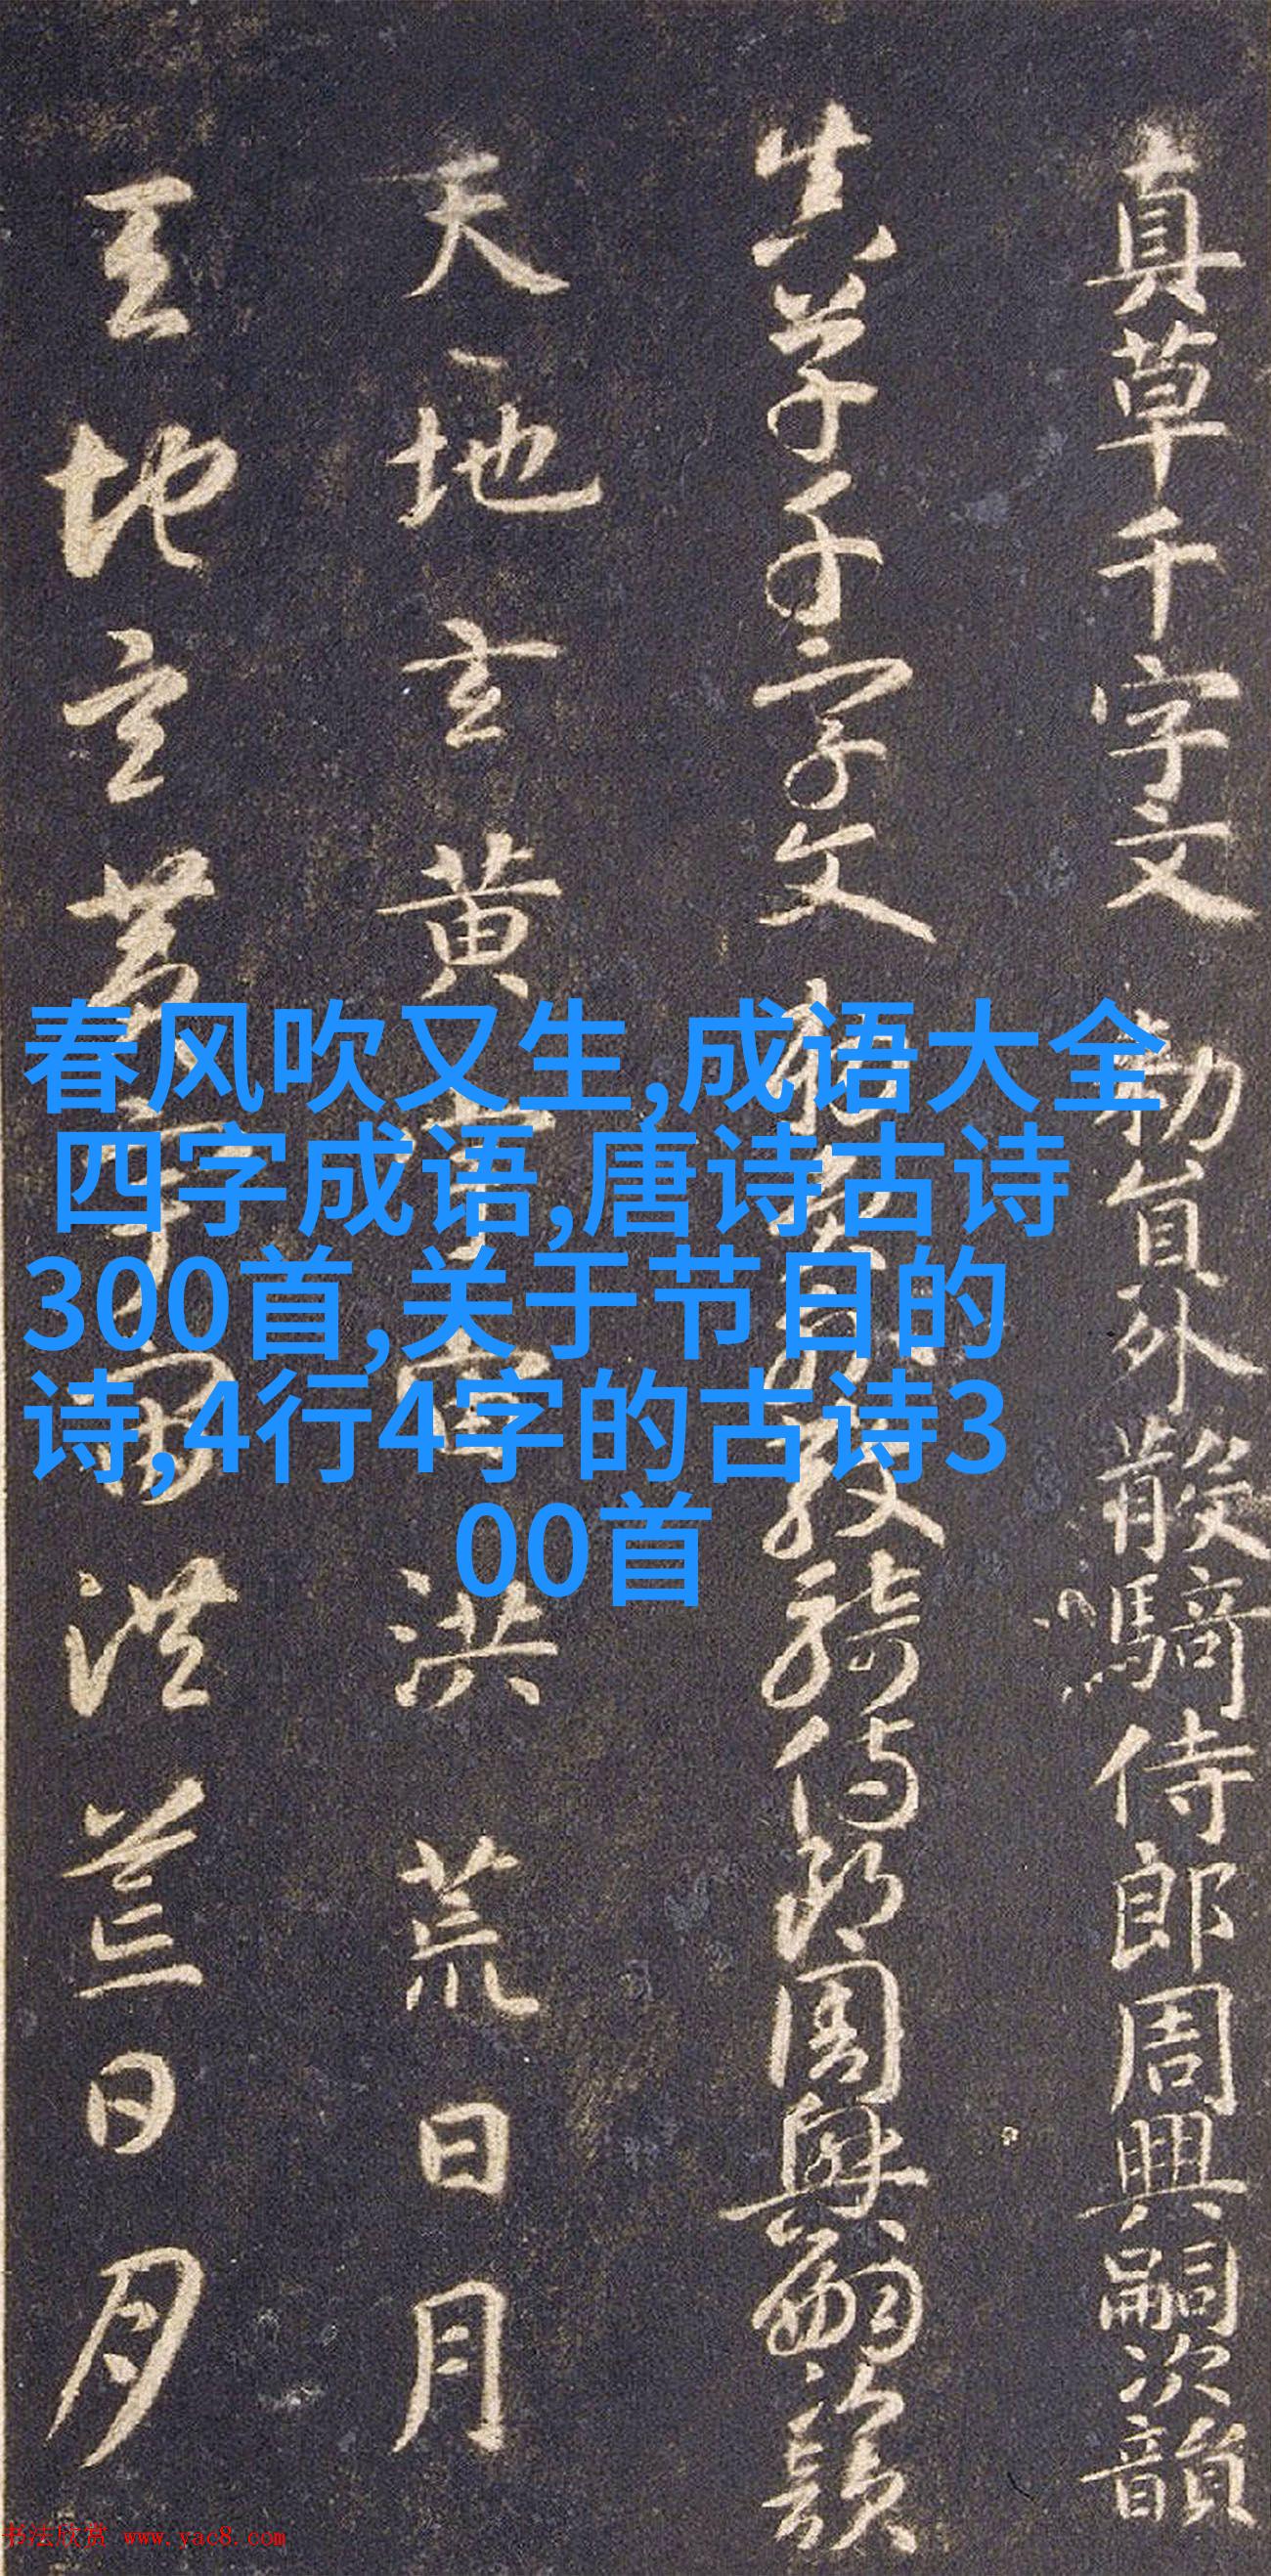 真草千字文 勑員外散騎侍郎周興嗣次韻
真草千字文 勑員外散騎侍郎周興嗣次韻
天地玄黃宇宙洪荒日月
天地玄黃宇宙洪荒日月
春风吹又生,成语大全
四字成语,唐诗古诗
300首,关于节目的
诗,4行4字的古诗3
00首
书法欣赏 www.yac8.com